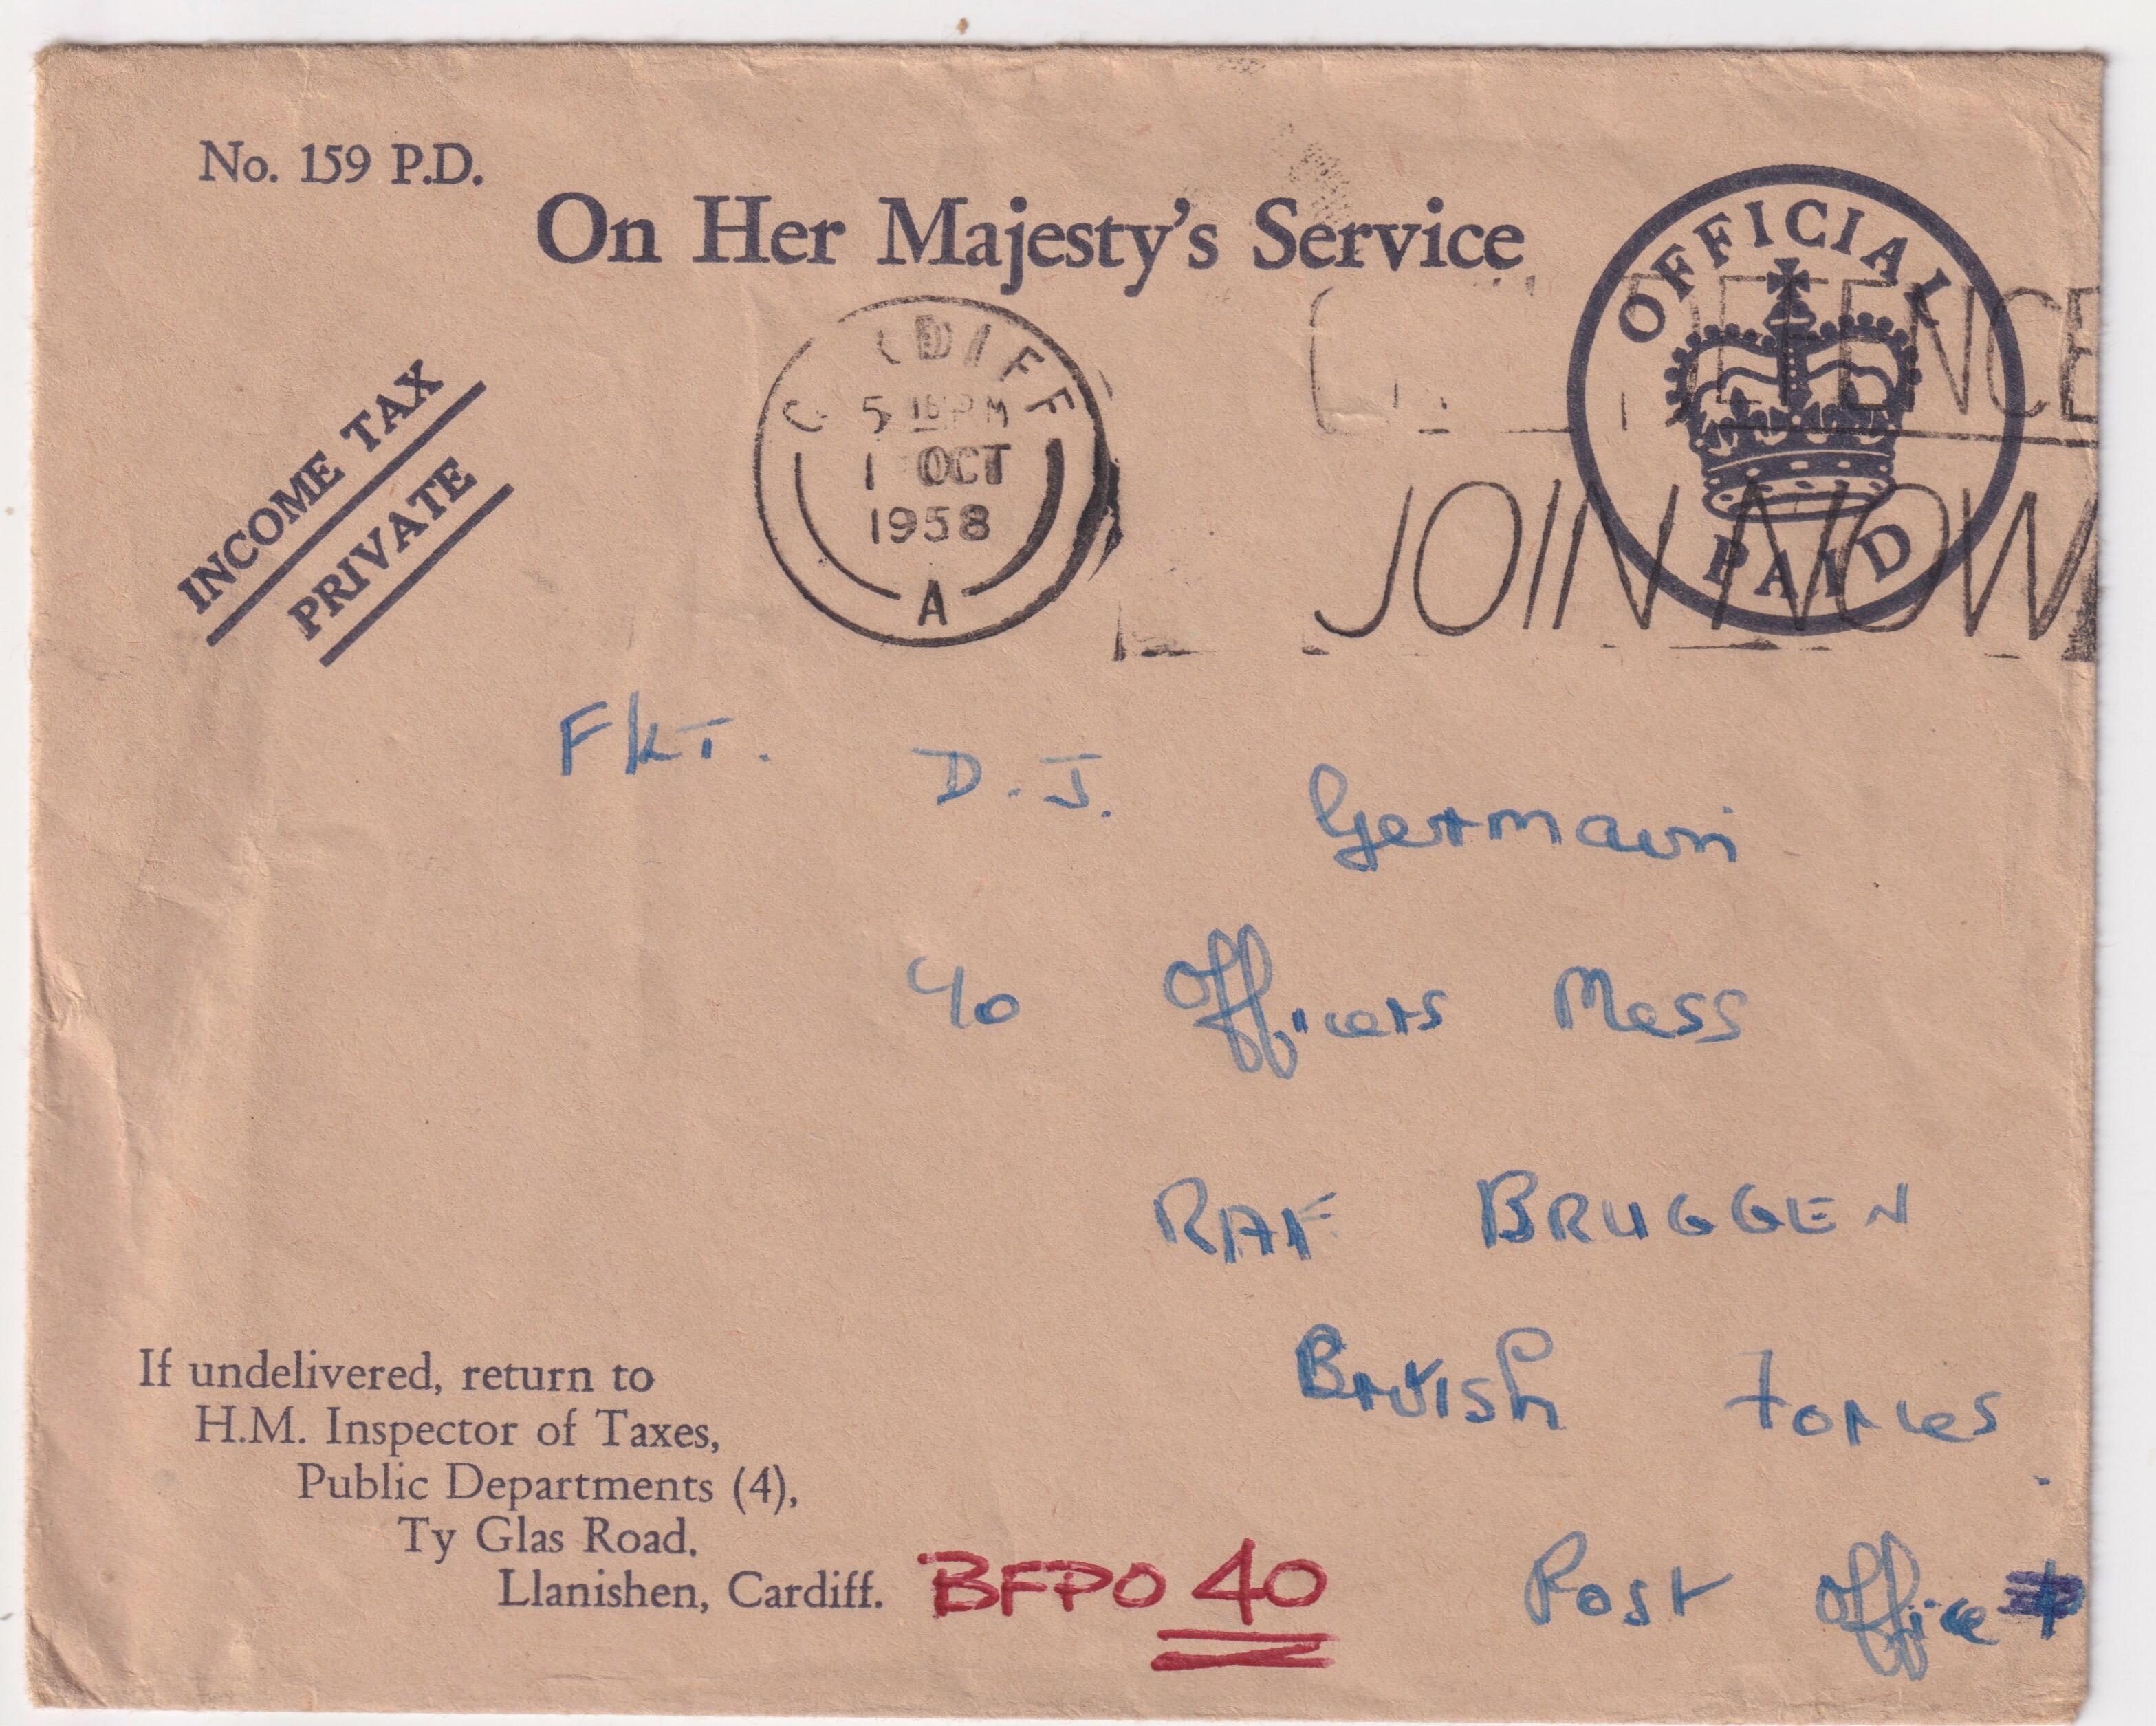 No. 159 P.D.
On Her Majesty's Service
OFFICIAL
PAID
INCOME TAX
PRIVATE
5 15 PM
1 OCT
1958
A
JOIN NOW
Fkt. D.J. Germain
c/o Officers Mess
RAF BRUGGEN
British Forces
Post Office
If undelivered, return to
H.M. Inspector of Taxes,
Public Departments (4),
Ty Glas Road,
Llanishen, Cardiff.
BFPO 40